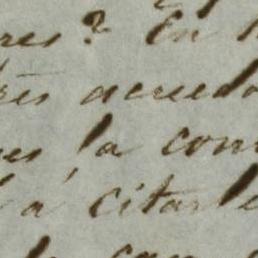 res? En
tres acreedo
es, la con
a citarle